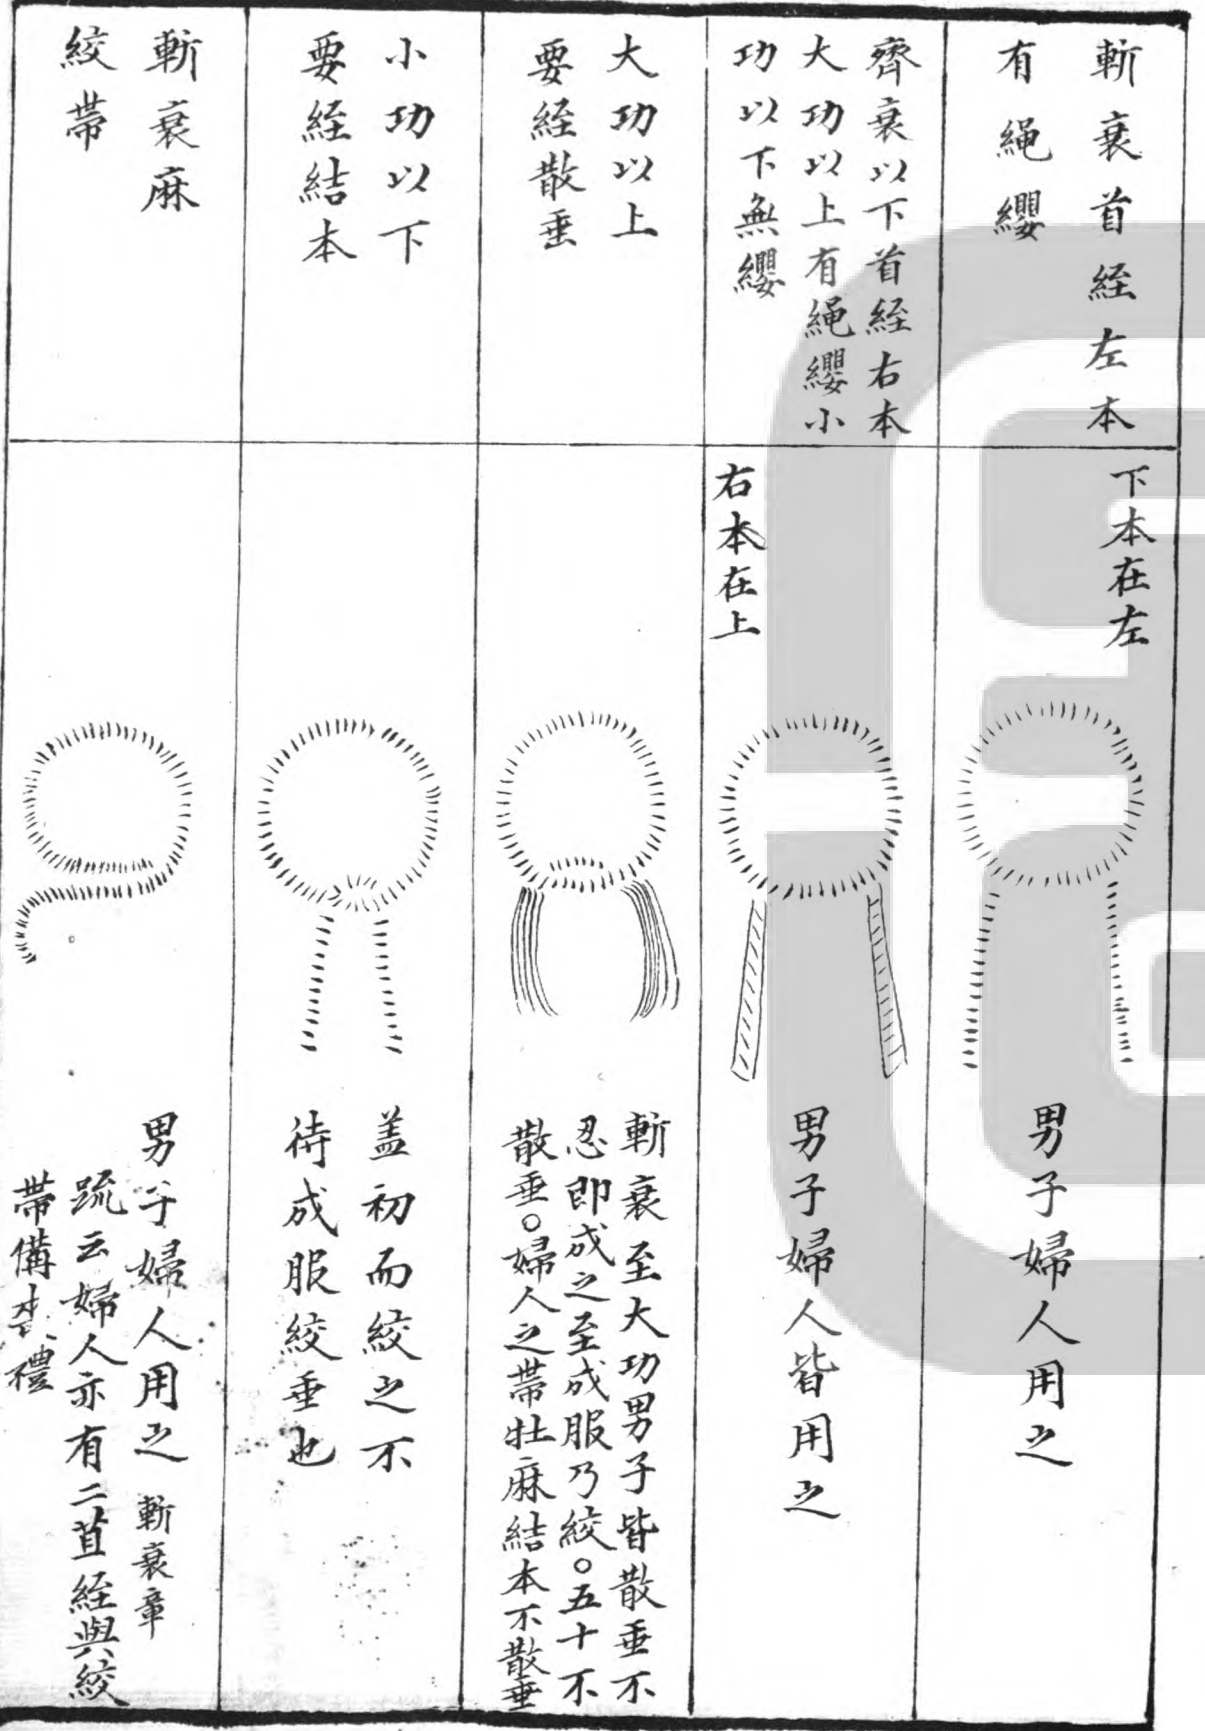 斬衰首絰左本
有繩纓
下本在左
男子婦人用之
齊衰以下首絰右本
大功以上有繩纓小
功以下無纓
右本在上
男子婦人皆用之
大功以上
要絰散垂
斬衰至大功男子皆散垂不
忍即成之至成服乃絞○五十不
散垂○婦人之帶牡麻結本不散垂
小功以下
要絰結本
盖初而絞之不
待成服絞垂也
斬衰麻
絞帶
男子婦人用之 斬衰章
疏云婦人亦有二苴絰與絞
帶備喪禮